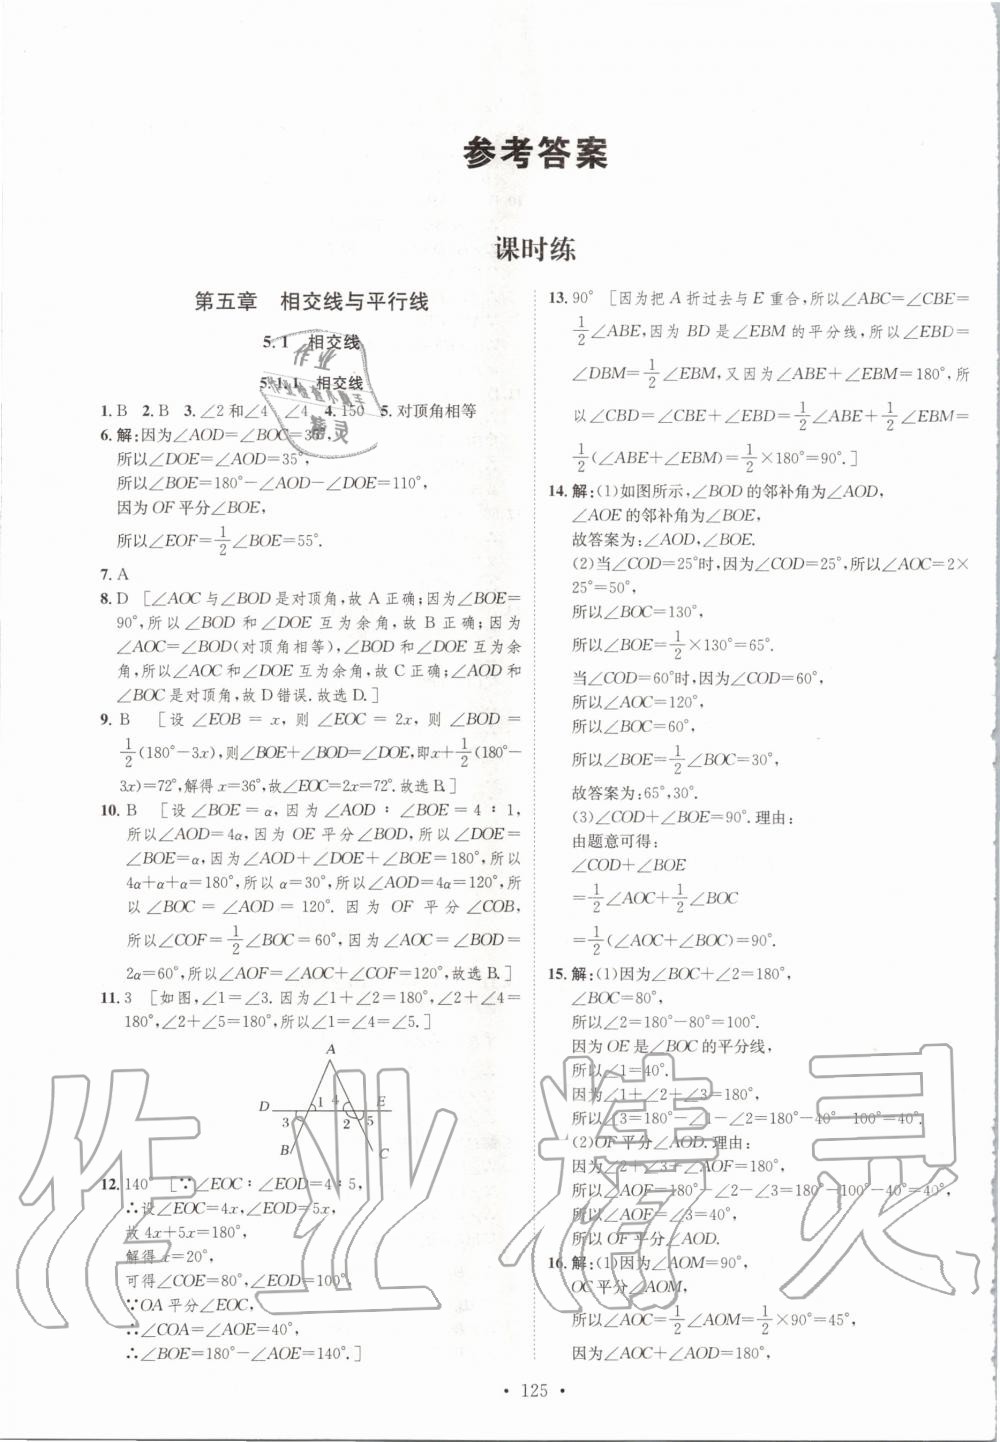 参考答案
课时练
第五章　相交线与平行线
5.1　相交线
5.1.1　相交线
1. B　2. B　3. ∠2和∠4　∠4　4. 150　5. 对顶角相等
6. 解:因为∠AOD=∠BOC=35°,
所以∠DOE=∠AOD=35°,
所以∠BOE=180°-∠AOD-∠DOE=110°,
因为OF平分∠BOE,
所以∠EOF=1/2∠BOE=55°.
7. A
8. D　[∠AOC与∠BOD是对顶角,故A正确;因为∠BOE=
90°,所以∠BOD和∠DOE互为余角,故B正确;因为
∠AOC=∠BOD(对顶角相等),∠BOD和∠DOE互为余
角,所以∠AOC和∠DOE互为余角,故C正确;∠AOD和
∠BOC是对顶角,故D错误.故选D.]
9. B　[设∠EOB=x,则∠EOC=2x,则∠BOD=
1/2(180°-3x),则∠BOE+∠BOD=∠DOE,即x+1/2(180°-
3x)=72°,解得x=36°,故∠EOC=2x=72°.故选B.]
10. B　[设∠BOE=α,因为∠AOD∶∠BOE=4∶1,
所以∠AOD=4α,因为OE平分∠BOD,所以∠DOE=
∠BOE=α,因为∠AOD+∠DOE+∠BOE=180°,所以
4α+α+α=180°,所以α=30°,所以∠AOD=4α=120°,所
以∠BOC=∠AOD=120°.因为OF平分∠COB,
所以∠COF=1/2∠BOC=60°,因为∠AOC=∠BOD=
2α=60°,所以∠AOF=∠AOC+∠COF=120°,故选B.]
11. 3　[如图,∠1=∠3.因为∠1+∠2=180°,∠2+∠4=
180°,∠2+∠5=180°,所以∠1=∠4=∠5.]
A
D 3 1 4 E
2 5
B C
12. 140°　[∵∠EOC∶∠EOD=4∶5,
∴设∠EOC=4x,∠EOD=5x,
故4x+5x=180°,
解得x=20°,
可得∠COE=80°,∠EOD=100°,
∵OA平分∠EOC,
∴∠COA=∠AOE=40°,
∴∠BOE=180°-∠AOE=140°.]
13. 90°　[因为把A折过去与E重合,所以∠ABC=∠CBE=
1/2∠ABE,因为BD是∠EBM的平分线,所以∠EBD=
∠DBM=1/2∠EBM,又因为∠ABE+∠EBM=180°,所
以∠CBD=∠CBE+∠EBD=1/2∠ABE+1/2∠EBM=
1/2(∠ABE+∠EBM)=1/2×180°=90°.]
14. 解:(1)如图所示,∠BOD的邻补角为∠AOD,
∠AOE的邻补角为∠BOE,
故答案为:∠AOD,∠BOE.
(2)当∠COD=25°时,因为∠COD=25°,所以∠AOC=2×
25°=50°,
所以∠BOC=130°,
所以∠BOE=1/2×130°=65°.
当∠COD=60°时,因为∠COD=60°,
所以∠AOC=120°,
所以∠BOC=60°,
所以∠BOE=1/2∠BOC=30°,
故答案为:65°,30°.
(3)∠COD+∠BOE=90°.理由:
由题意可得:
∠COD+∠BOE
=1/2∠AOC+1/2∠BOC
=1/2(∠AOC+∠BOC)=90°.
15. 解:(1)因为∠BOC+∠2=180°,
∠BOC=80°,
所以∠2=180°-80°=100°.
因为OE是∠BOC的平分线,
所以∠1=40°.
因为∠1+∠2+∠3=180°,
所以∠3=180°-∠1-∠2=180°-40°-100°=40°.
(2)OF平分∠AOD.理由:
因为∠2+∠3+∠AOF=180°,
所以∠AOF=180°-∠2-∠3=180°-100°-40°=40°,
所以∠AOF=∠3=40°,
所以OF平分∠AOD.
16. 解:(1)因为∠AOM=90°,
OC平分∠AOM,
所以∠AOC=1/2∠AOM=1/2×90°=45°,
因为∠AOC+∠AOD=180°,
• 125 •
作业精灵